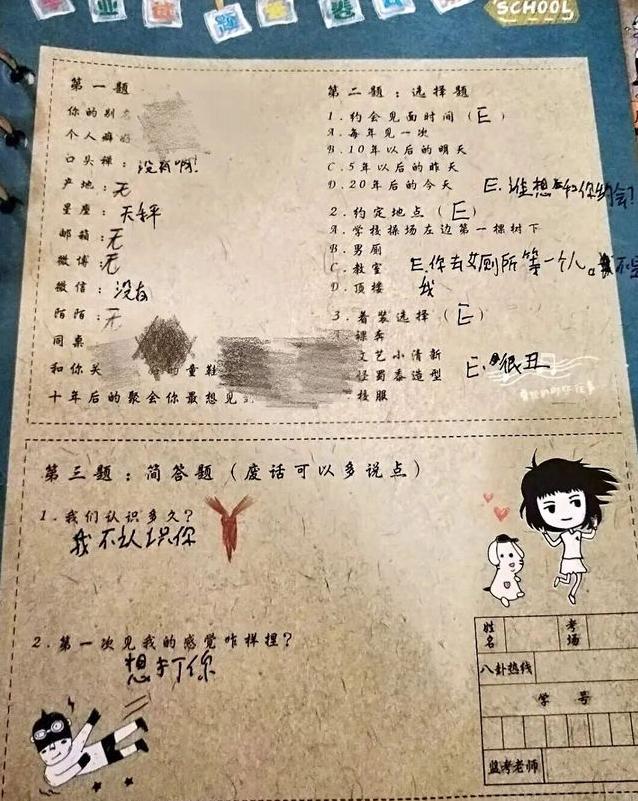 SCHOOL
第一题
你的别
个人癖好
口头禅：没有啊！
产地：无
星座：天秤
邮箱：无
微博：无
微信：没有
陌陌：无
同桌
和你关 的童鞋
十年后的聚会你最想见到
第二题：选择题
1.约会见面时间（E）
A.每年见一次
B.10年以后的明天
C.5年以后的昨天
D.20年后的今天
E.谁想和你约会？
2.约定地点（E）
A.学校操场左边第一棵树下
B.男厕
C.教室
D.顶楼
E.你去女厕所等一个人。
我
3.着装选择（E）
裸奔
文艺小清新
怪蜀黍造型
校服
E.很丑
第三题：简答题（废话可以多说点）
1.我们认识多久？
我不认识你
2.第一次见我的感觉咋样捏？
想打你
姓名
考场
八卦热线
学号
监考老师